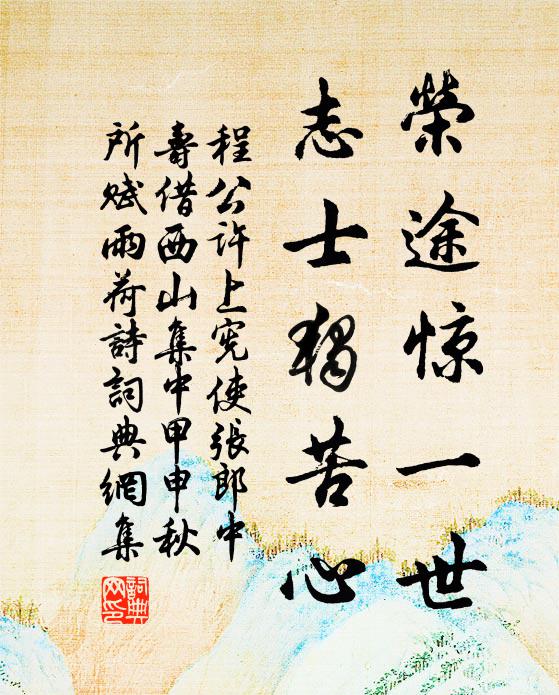 榮途惊一世
志士獨苦心
程公许上宪使張郎中
壽借西山集中甲申秋
所賦雨荷詩詞典網集
詞典
网印